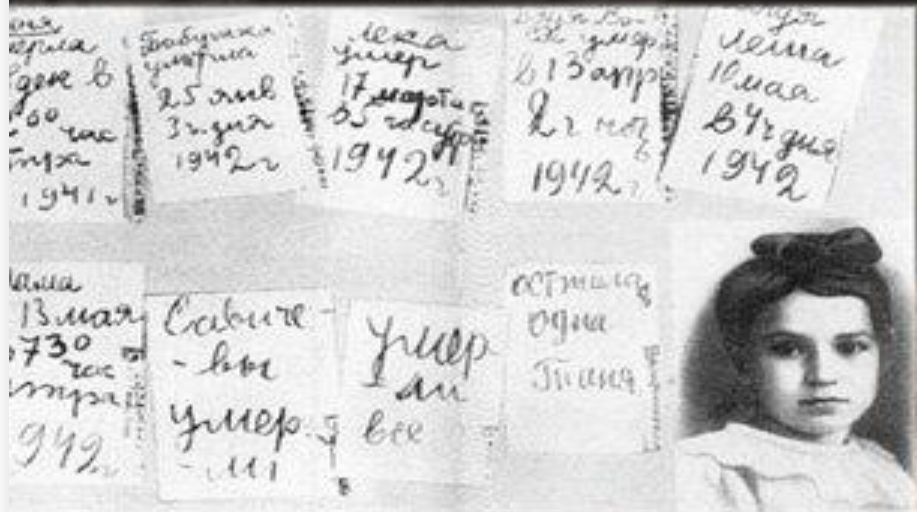 ерла
дек в
00 час
тра
1941 г
Бабушка
умерла
25 янв
3 ч. дня
1942 г
Лека
умер
17 марта
в 5 час утр
1942 г
Дядя Ва
ся умер
в 13 апр
2 ч ноч
1942 г
Леша
10 мая
в 4 ч дня
1942
ама
13 мая
в 730
час
утра
942 г
Савиче-
-вы
умер-
-ли
умер
-ли
все
осталась
одна
Таня